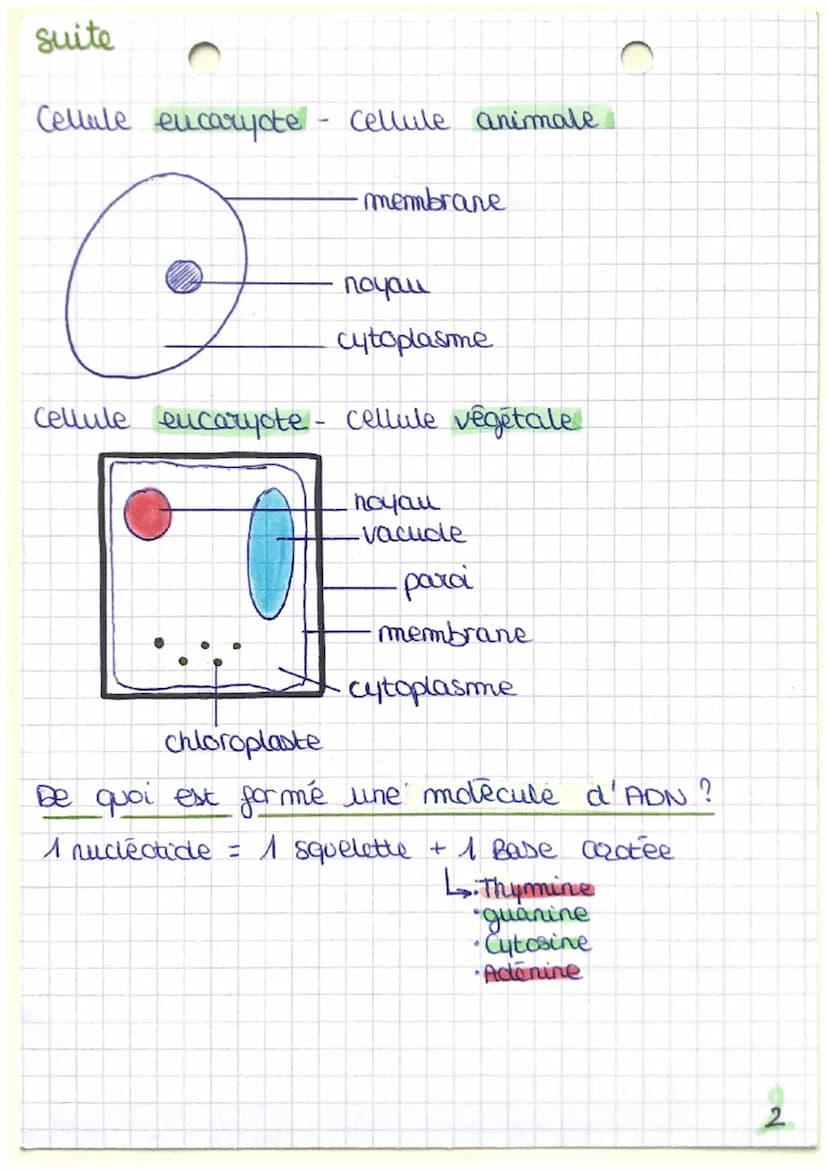 suite
Cellule eucaryote - cellule animale
membrane
noyau
cytoplasme
Cellule eucaryote - cellule végétale
noyau
vacuole
paroi
membrane
cytoplasme
chloroplaste
De quoi est formé une molécule d'ADN ?
1 nucléotide = 1 squelette + 1 Base azotée
↳ • Thymine
• guanine
• Cytosine
• Adénine
2